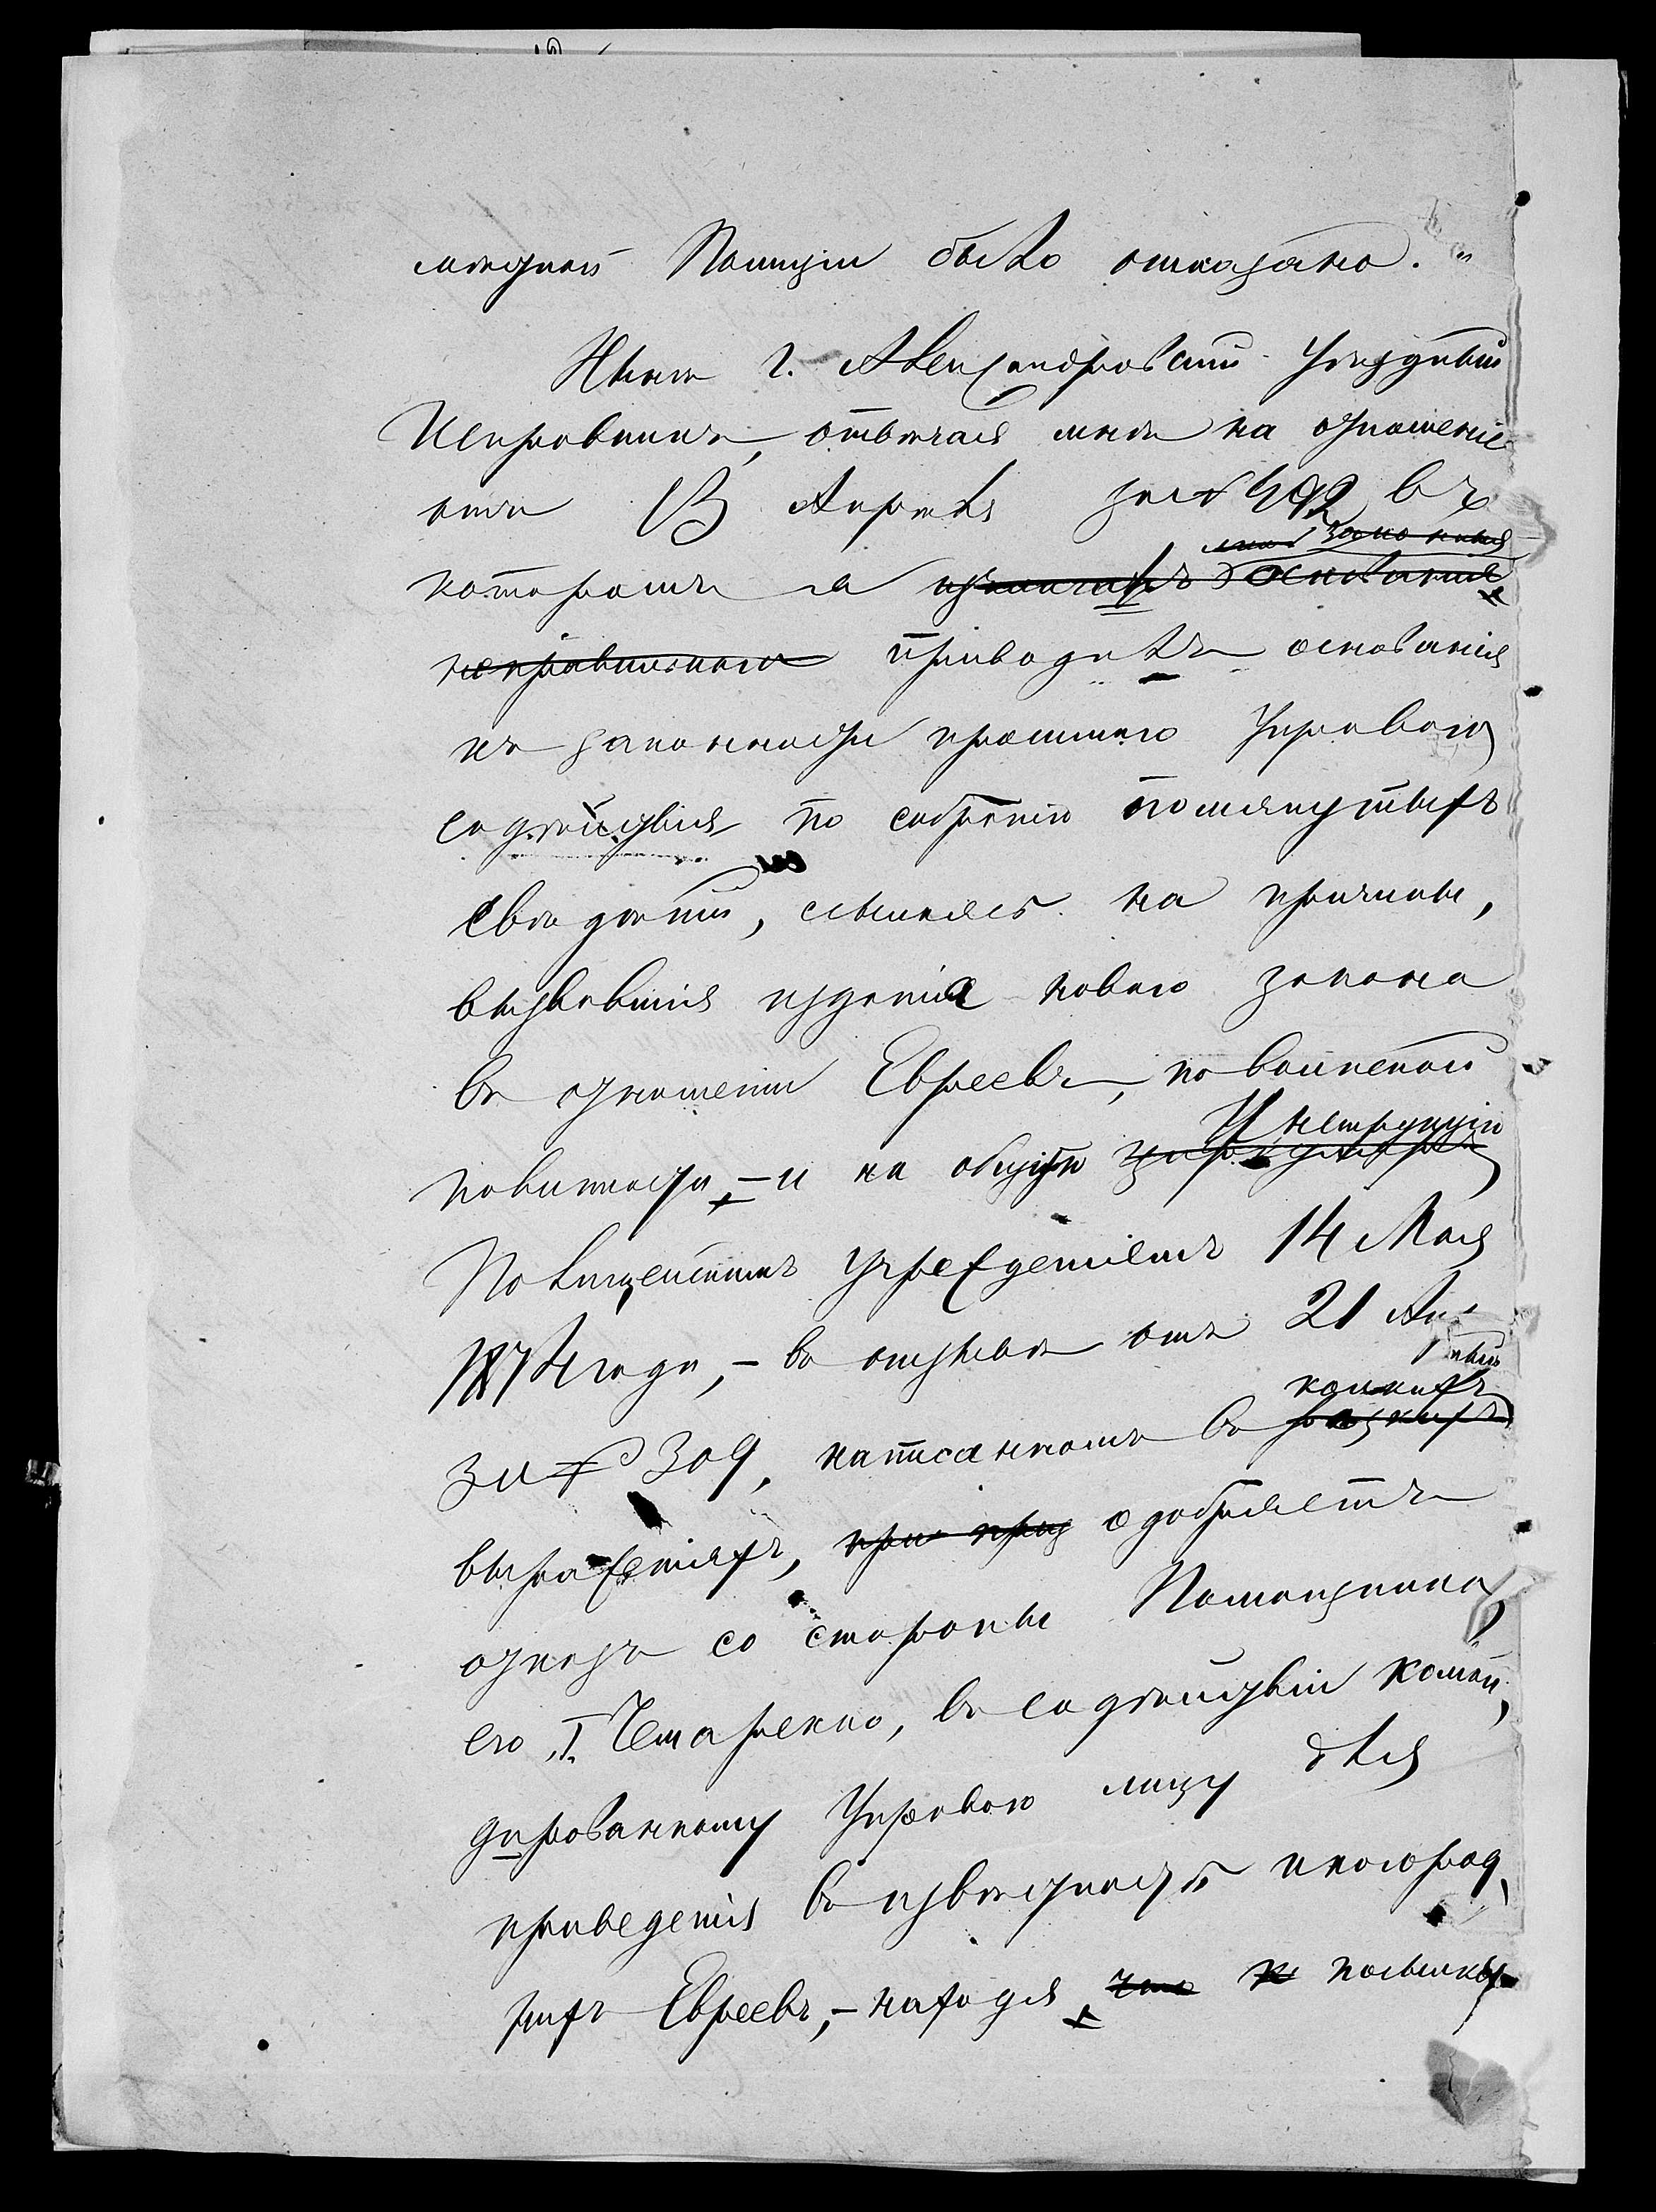 мѣстной Полиціи было отказано."
Нынѣ г. Александровскій Уѣздный
Исправникъ, отвѣчая мнѣ на отношеніе
отъ 13 Апрѣля за № 492, въ
мной законныя
которомъ я основанія
неправильнаго приводилъ основанія
къ законности просимаго Управою
содѣйствія по собранію помянутыхъ
свѣдѣній, ссылаясь на причины,
вызвавшія изданіе новаго закона
въ отношеніи Евреевъ, по воинской
Инструкцію
повинности, – и на общую циркуляръ
Полицейскимъ Учрежденіямъ 14 Мая
1874 года, – въ отзывѣ отъ 21 Ап.
колкихъ
за № 309, написанномъ въ рѣзкихъ
выраженіяхъ, при одобряетъ
отказъ со стороны Помощника
его, г. Чемаренко, въ содѣйствіи коман,
дированному Управою лицу для
приведенія въ извѣстность иногород,
нихъ Евреевъ, – находя, что не